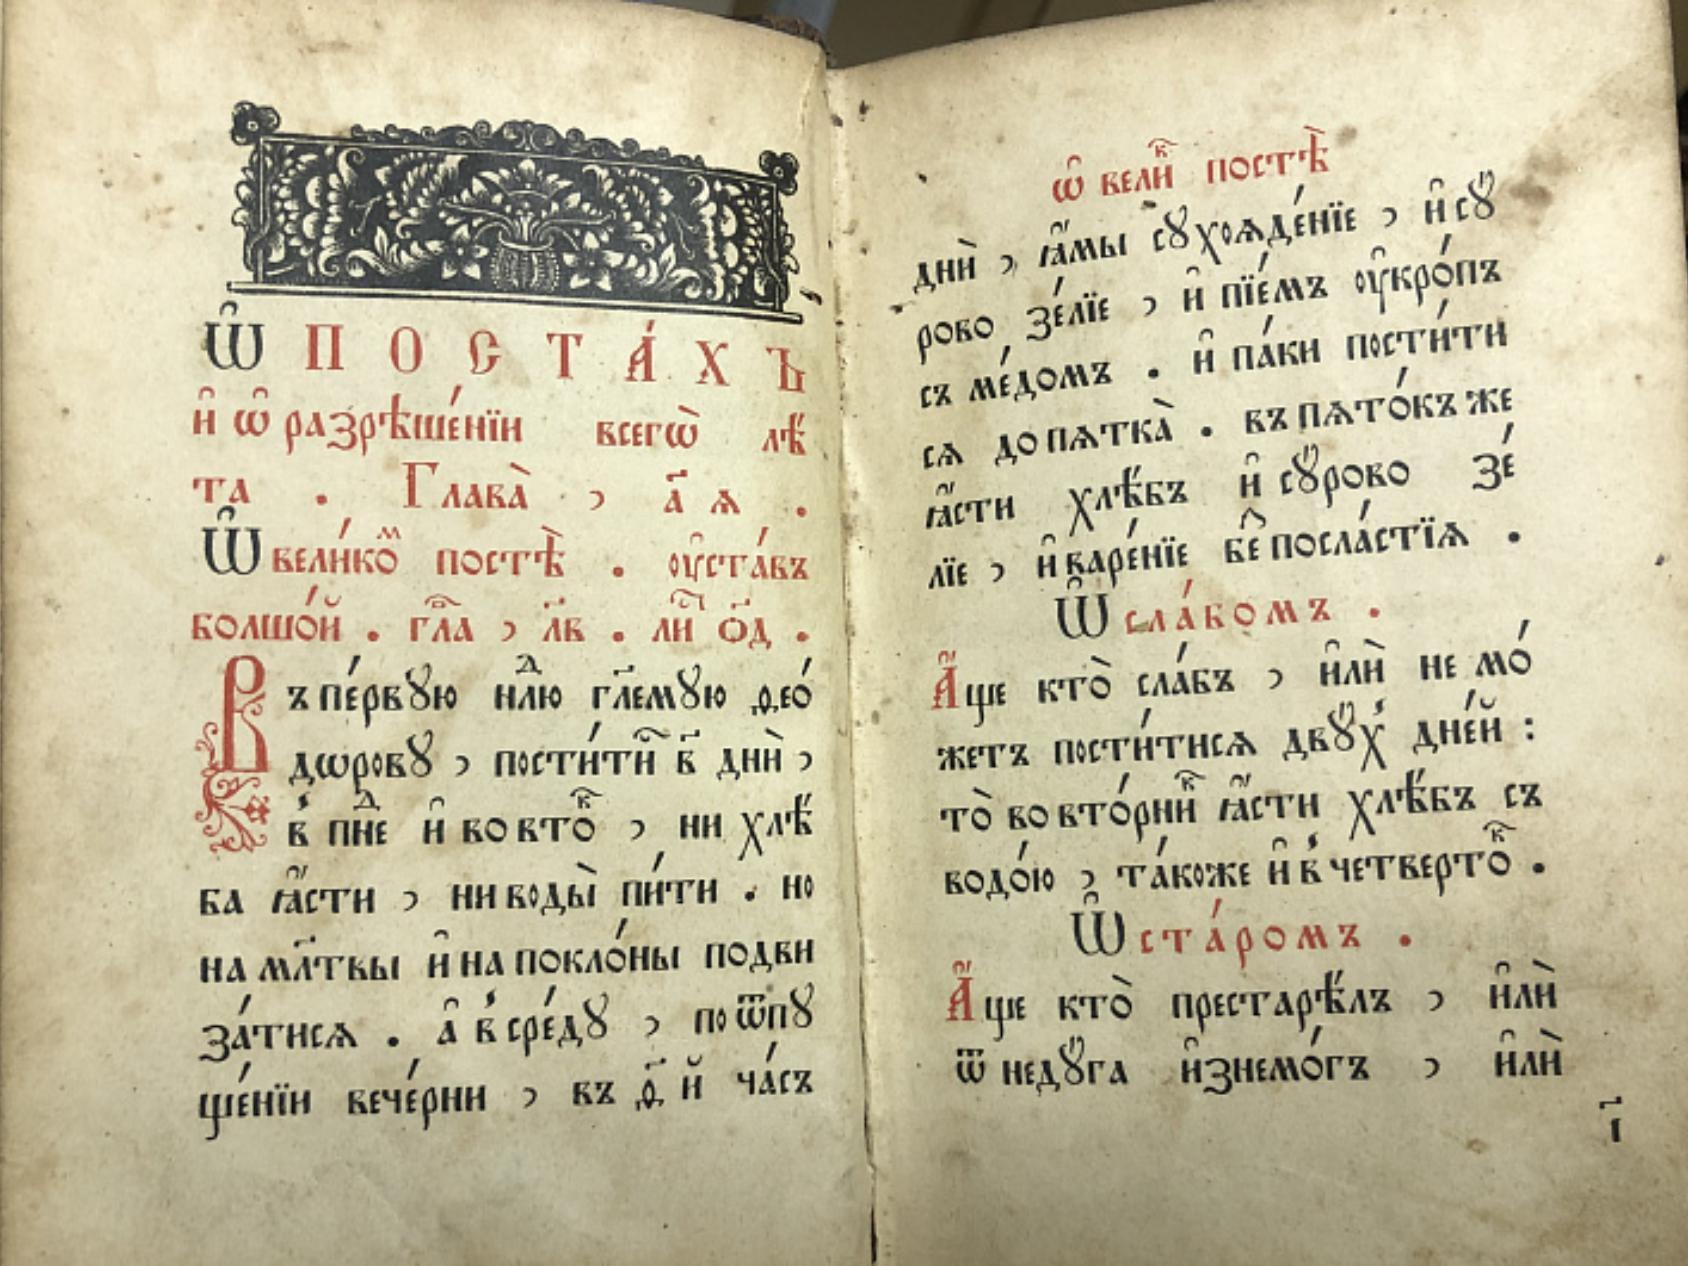 Ѽ ПОСТА́ХЪ
и҆ ѽ разрѣше́нїи всегѡ̀ лѣ́
та . Глава̀ , а҃ ѧ .
Ѽ вели́коⷨ постѣ̀ . ᲂу҆ста́въ
болшо́й . гла҃ , л҃в . ли҃ ѻ҃д .
Въ пе́рвꙋю нлⷣю гл҃емꙋю ѳео́
дѡровꙋ , пости́ти҇ в҃ днѝ ,
в̾ пⷣне и҆ во втоⷦ҇ , ни хлѣ́
ба ꙗ҆́сти , ни воды̀ пи́ти . но
на мл҃твы и҆ на покло́ны подви
за́тисѧ . а҆ в̾ сре́дꙋ , по ѿпꙋ
ще́нїи вече́рни , въ ѳ҃ й ча́съ
ѽ велиⷦ҇ постѣ̀
днѝ , ꙗ҆́мы сꙋхоѧде́нїе , и҆ сꙋ́
рово зе́лїе , и҆ пїе́мъ ᲂу҆кро́пъ
съ ме́домъ . и҆ па́ки пости́ти
сѧ до пѧтка̀ . въ пѧто́къ же
ꙗ҆́сти хлѣ́бъ и҆ сꙋ́рово зе́
лїе , и҆ варе́нїе бе҇ посла́стїѧ .
Ѽ сла́бомъ .
А҆́ще кто̀ сла́бъ , и҆лѝ не мо́
жетъ пости́тисѧ двꙋ́х̾ дне́й :
то̀ во вто́рниⷦ҇ ꙗ҆́сти хлѣ́бъ съ
водо́ю , та́коже и҆ в̾ четвертоⷦ҇ .
Ѽ ста́ромъ .
А҆́ще кто̀ престарѣ́лъ , и҆лѝ
ѿ недꙋ́га и҆знемо́гъ , и҆лѝ
і҃